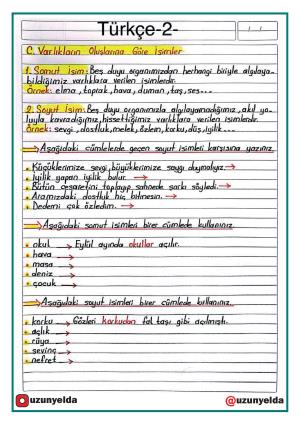 Türkçe-2-
C. Varlıkların Oluşlarına Göre İsimler
1. Somut isim: Beş duyu organımızdan herhangi biriyle algılaya-
bildiğimiz varlıklara verilen isimlerdir.
Örnek: elma, toprak, hava, duman, taş, ses...
2. Soyut isim: Beş duyu organımızla algılayamadığımız, akıl yo-
luyla kavradığımız, hissettiğimiz varlıklara verilen isimlerdir.
Örnek: sevgi, dostluk, melek, özlem, korku, düş, iyilik...
Aşağıdaki cümlelerde geçen soyut isimleri karşısına yazınız.
• Küçüklerimize sevgi büyüklerimize saygı duymalıyız. →
• İyilik yapan iyilik bulur. →
• Bütün cesaretini toplayıp sahnede şarkı söyledi. →
• Aramızdaki dostluk hiç bitmesin. →
• Dedemi çok özledim. →
Aşağıdaki somut isimleri birer cümlede kullanınız.
• okul → Eylül ayında okullar açılır.
• hava →
• masa →
• deniz →
• çocuk →
Aşağıdaki soyut isimleri birer cümlede kullanınız.
• korku → Gözleri korkudan fal taşı gibi açılmıştı.
• açlık →
• rüya →
• sevinç →
• nefret →
uzunyelda @uzunyelda